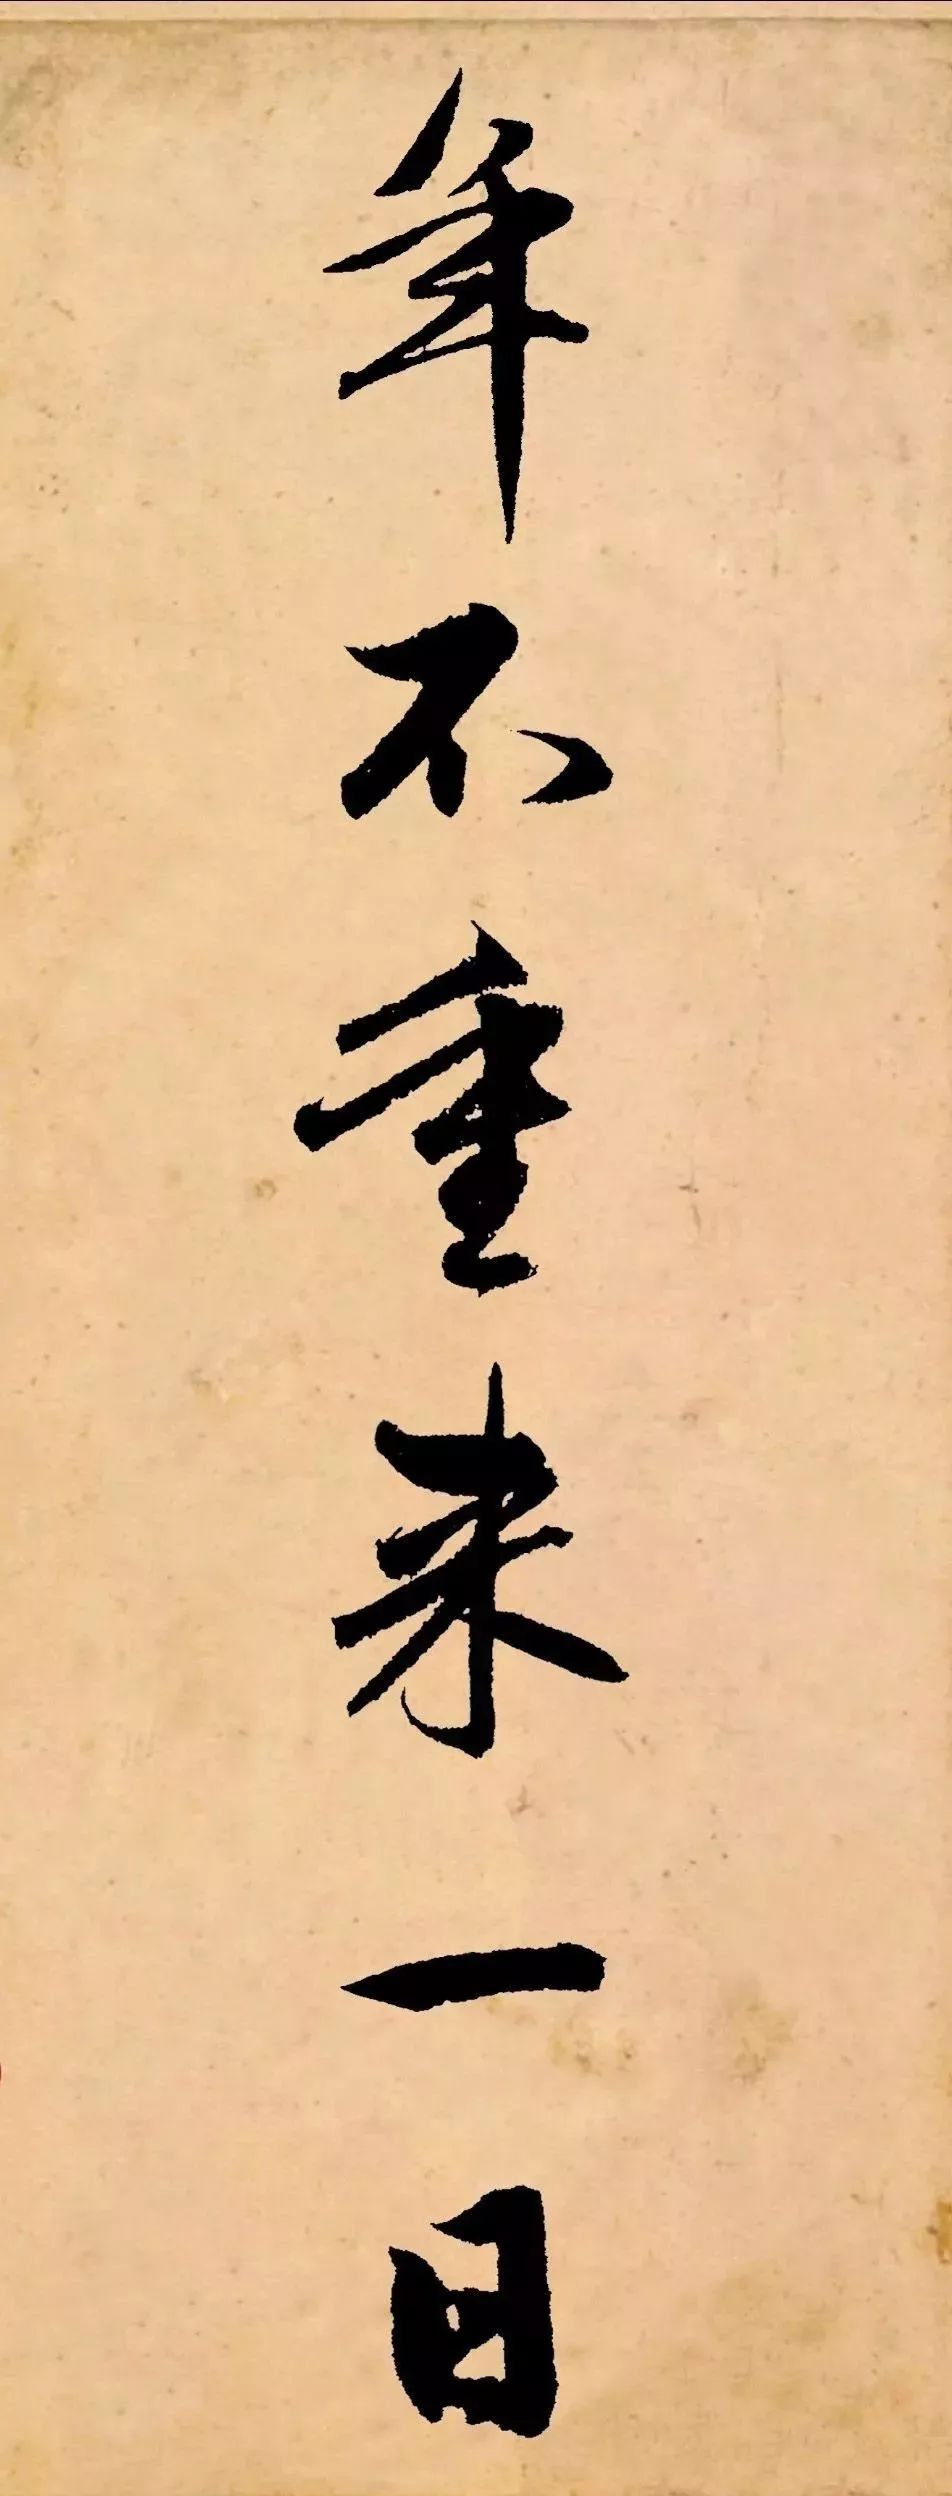 年不重来一日